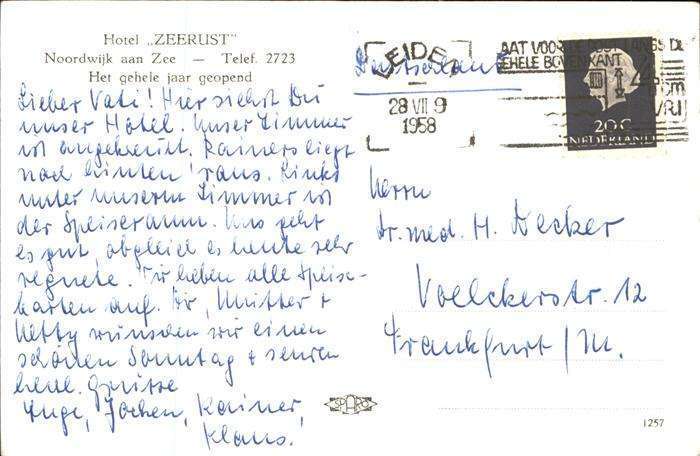 Hotel „ZEERUST"
Noordwijk aan Zee — Telef. 2723
Het gehele jaar geopend
Lieber Vati! Hier siehst Du
unser Hotel. Unser Zimmer
ist angekreuzt. Rainers liegt
nach hinten raus. Links
unter unserm Zimmer ist
der Speiseraum. Uns geht
es gut, obgleich es heute sehr
regnete. Wir heben alle Speise-
karten auf. Dir, Mutter +
Hetty wünschen wir einen
schönen Sonntag + senden
herzl. Grüsse
Inge, Jochen, Rainer,
Klaus.
Deutschland
LEIDEN
28 VII 9
1958
LAAT VOOR DE POST LANGS DE
GEHELE BOVENKANT
VRIJ
20 C
NEDERLAND
Herrn
Dr. med. H. Decker
Voelckerstr. 12
Frankfurt / M.
SPARO
1257